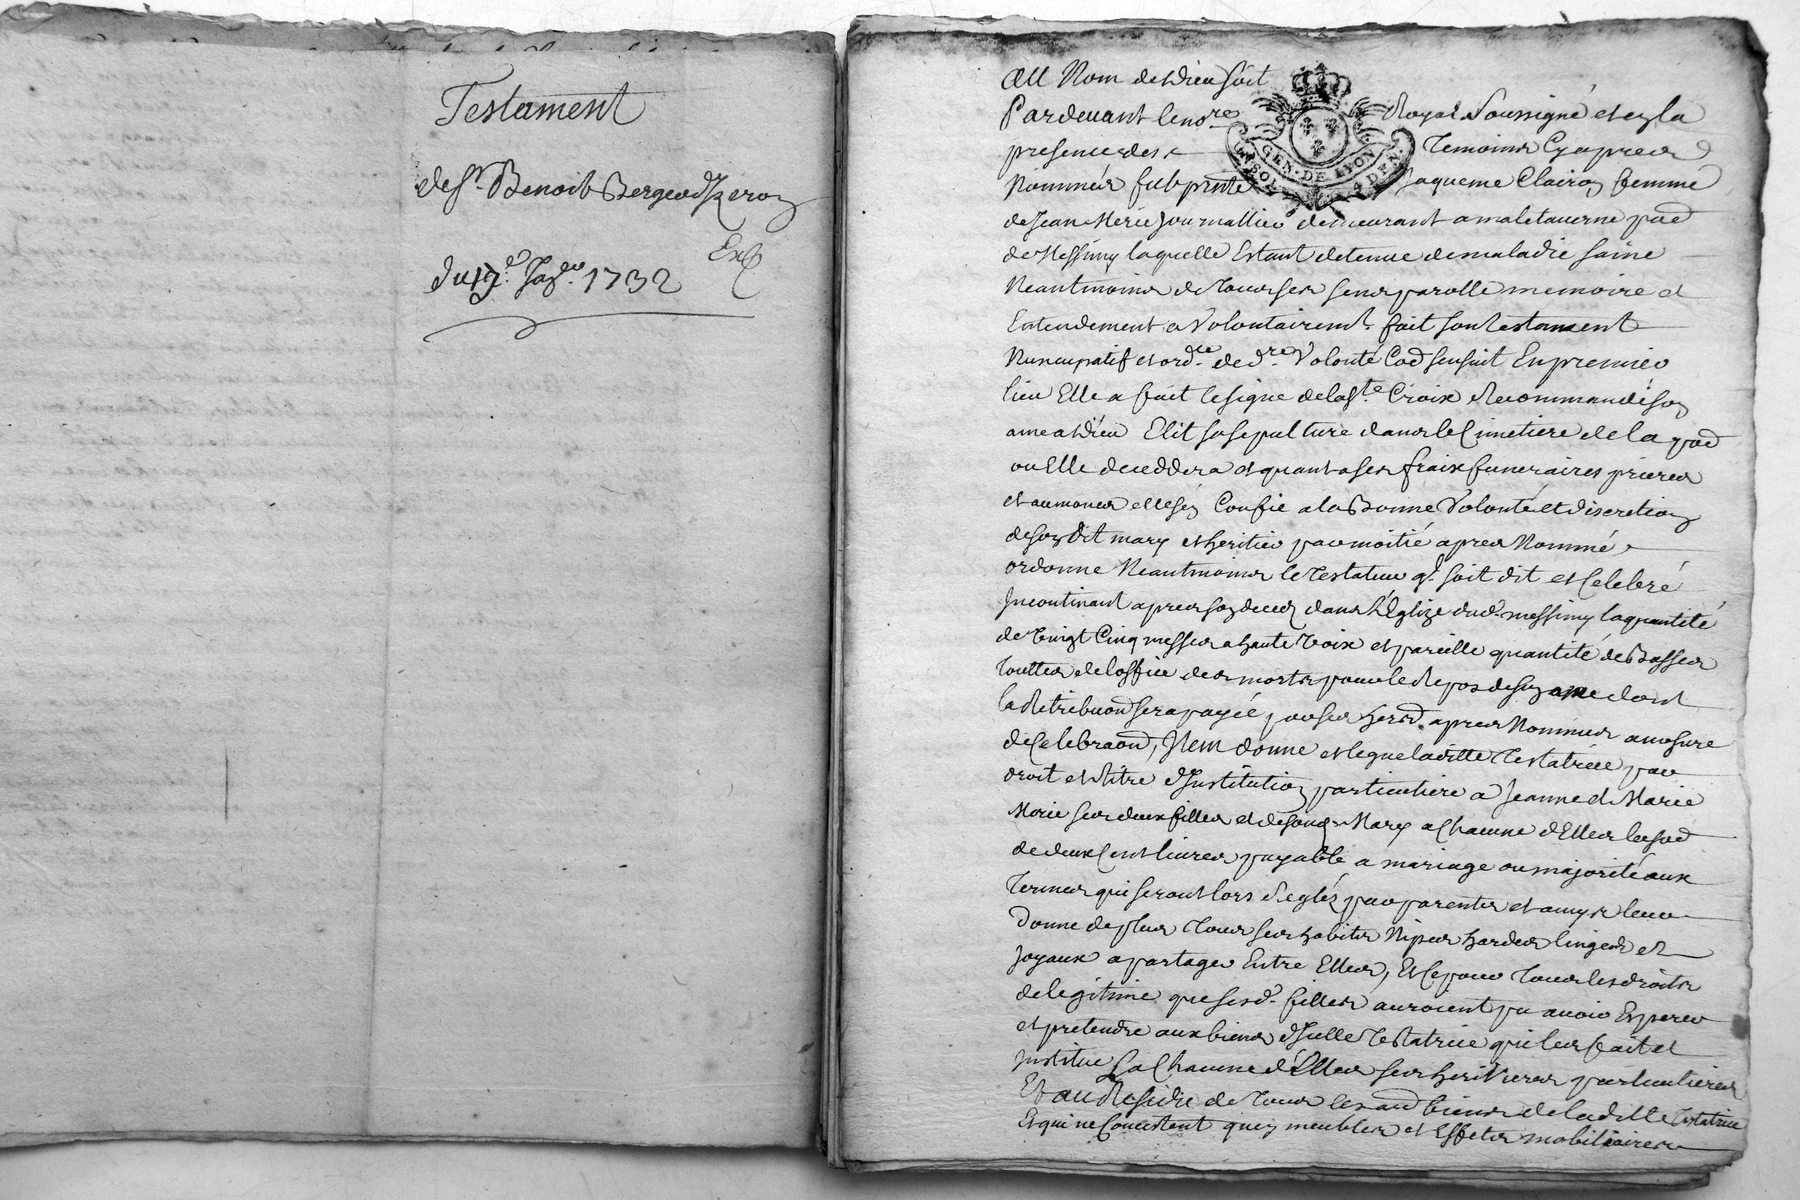 Testament
de Sr. Benoit Bergeod
Exp
du 19e. 1732
Au Nom de Dieu soit
Pardevant le nore Royal Soussigné et en la
presence des Temoins Cy apres
Nommés fut pnte Jaqueme Clairon femme
de Jean Merie Journallier demeurant a maletaverne psse
de Messimy laquelle Estant detenue de maladie saine
Neantmoins de Tous ses sens parolle memoire et
Entendement a Volontairemt. fait son testament
Nuncupatif et ordce de dre Volonté Co͞e sensuit En premier
lieu Elle a fait le signe de la Ste Croix Recommandé son
ame a Dieu Elit sa sepulture dans le Cimetiere de la psse
ou Elle deceddera et quant a ses fraix funeraires prieres
et aumones elle sen Confie a la Bonne Volonté et discretion
de son Dit mary et heritier par moitié apres Nommé
ordonne Neantmoins le Testateur ql. soit dit et Celebré
Incontinant apres son deces dans l'Eglize dud. messimy la quantité
de Vingt Cinq messes a haute Voix et pareille quantité de Basses
Touttes de loffice des morts pour le Repos de son ame dont
la Retribuon͞ sera payée par ses hers. apres Nommés a mesure
de Celebraon͞, Item donne et legue laditte Testatrice par
droit et titre d'Institution particuliere a Jeanne et Marie
Merie ses deux filles et de sond. Mary a Chacune d'Elles la so͞e
de deux Cent livres payable a mariage ou majorité aux
Termes qui seront lors Reglés par parents et amys leur
Donne de plus Tous ses habits Nipes hardes linges et
Joyaux a partager Entre Elles, Et Ce pour Tous les droits
de legitime que ses d. filles auroient pu avoir Esperer
et pretendre aux biens d'Icelle Testatrice qui les fait et
Institue Chacune d'Elles ses heritieres particulieres
Et au Residu de Tous les biens de laditte Testatrice
Et qui ne Consistent quen meubles et Effets mobiliaires
GEN. DE LYON